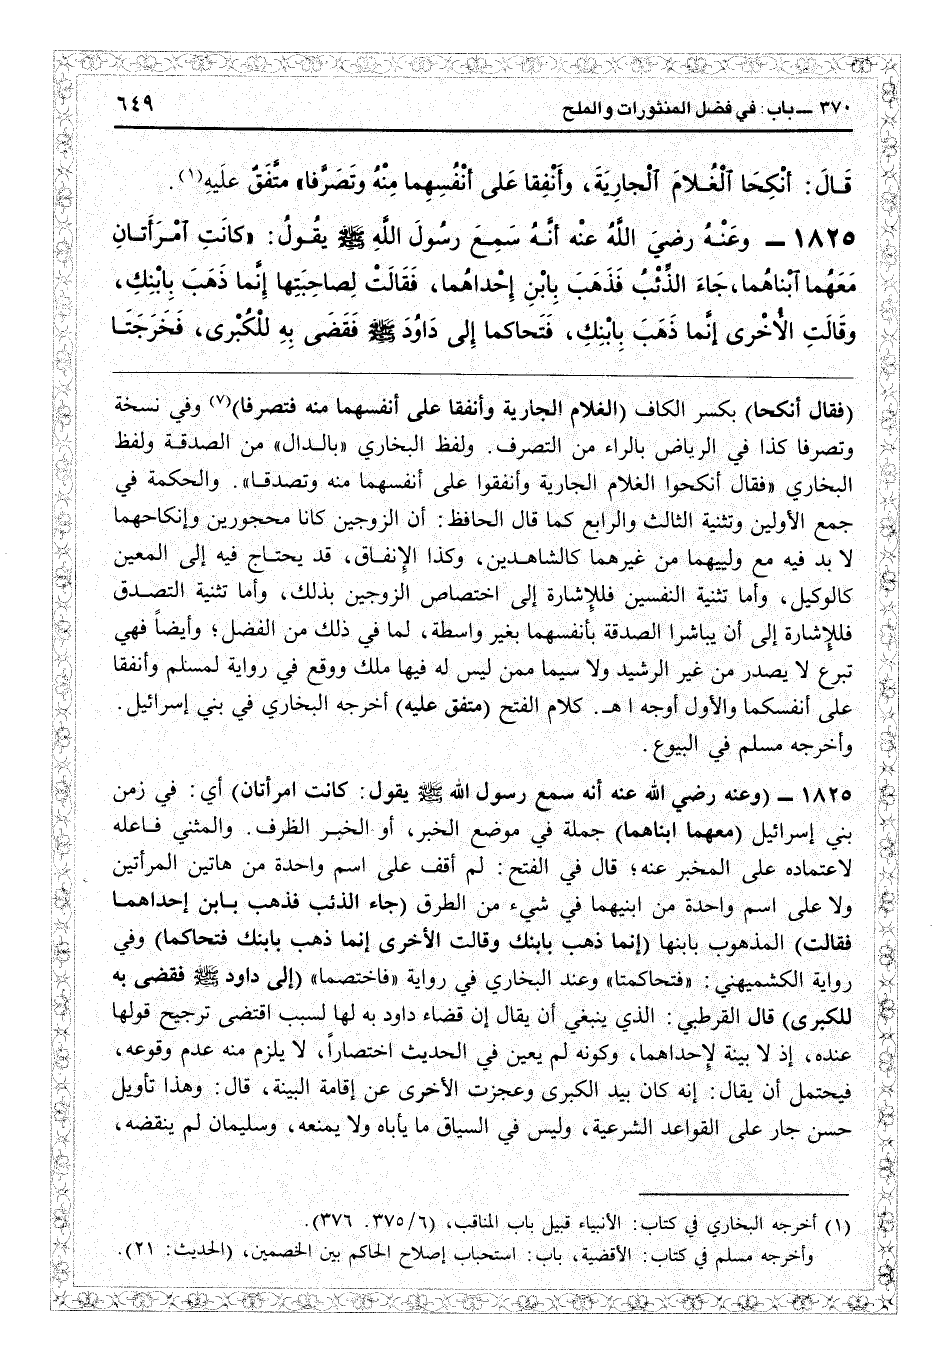 ٣٧٠ ــ باب: في فضل المنثورات والملح
٦٤٩
قَـالَ: أَنْكِحَا ٱلْغُـلامَ ٱلْجارِيَةَ، وأَنْفِقا عَلى أَنْفُسِهِما مِنْهُ وتَصَرَّفا» متَّفَقٌ علَيهِ(١).
١٨٢٥ ــ وعَنْـهُ رضيَ اللَّهُ عنْه أنَّـهُ سَمِـعَ رسُولَ اللَّهِ ﷺ يقُـولُ: «كانَتِ ٱمْـرَأَتـانِ
مَعَهُما ٱبْناهُما، جَاءَ الذِّئْبُ فَذَهَبَ بِابْنِ إِحْداهُما، فَقَالَتْ لِصاحِبَتِها إِنَّما ذَهَبَ بِابْنِكِ،
وقَالَتِ الأُخْرى إِنَّما ذَهَبَ بِابْنِكِ، فَتَحاكما إِلى دَاوُدَ ﷺ فَقَضَى بِهِ لِلْكُبْرى، فَخَرَجَتَـا
(فقال أنكحا) بكسر الكاف (الغلام الجارية وأنفقا على أنفسهما منه فتصرفا)(٧) وفي نسخة
وتصرفا كذا في الرياض بالراء من التصرف. ولفظ البخاري «بالـدال» من الصدقـة ولفظ
البخاري «فقال أنكحوا الغلام الجارية وأنفقوا على أنفسهما منه وتصدقـا». والحكمة في
جمع الأولين وتثنية الثالث والرابع كما قال الحافظ: أن الزوجين كانا محجورين وإنكاحهما
لا بد فيه مع ولييهما من غيرهما كالشاهـدين، وكذا الإنفـاق، قد يحتـاج فيه إلى المعين
كالوكيل، وأما تثنية النفسين فللإشارة إلى اختصاص الزوجين بذلك، وأما تثنية التصـدق
فللإشارة إلى أن يباشرا الصدقة بأنفسهما بغير واسطة، لما في ذلك من الفضل؛ وأيضاً فهي
تبرع لا يصدر من غير الرشيد ولا سيما ممن ليس له فيها ملك ووقع في رواية لمسلم وأنفقا
على أنفسكما والأول أوجه ا هـ. كلام الفتح (متفق عليه) أخرجه البخاري في بني إسرائيل.
وأخرجه مسلم في البيوع.
١٨٢٥ ــ (وعنه رضي الله عنه أنه سمع رسول الله ﷺ يقول: كانت امرأتان) أي: في زمن
بني إسرائيل (معهما ابناهما) جملة في موضع الخبر، أو الخبـر الظرف. والمثنى فـاعله
لاعتماده على المخبر عنه؛ قال في الفتح: لم أقف على اسم واحدة من هاتين المرأتين
ولا على اسم واحدة من ابنيهما في شيء من الطرق (جاء الذئب فذهب بـابن إحداهمـا
فقالت) المذهوب بابنها (إنما ذهب بابنك وقالت الأخرى إنما ذهب بابنك فتحاكما) وفي
رواية الكشميهني: «فتحاكمتا» وعند البخاري في رواية «فاختصما» (إلى داود ﷺ فقضى به
للكبرى) قال القرطبي: الذي ينبغي أن يقال إن قضاء داود به لها لسبب اقتضى ترجيح قولها
عنده، إذ لا بينة لإحداهما، وكونه لم يعين في الحديث اختصاراً، لا يلزم منه عدم وقوعه،
فيحتمل أن يقال: إنه كان بيد الكبرى وعجزت الأخرى عن إقامة البينة، قال: وهذا تأويل
حسن جار على القواعد الشرعية، وليس في السياق ما يأباه ولا يمنعه، وسليمان لم ينقضه،
(١) أخرجه البخاري في كتاب: الأنبياء قبيل باب المناقب، (٦/ ٣٧٥. ٣٧٦).
وأخرجه مسلم في كتاب: الأقضية، باب: استحباب إصلاح الحاكم بين الخصمين، (الحديث: ٢١).